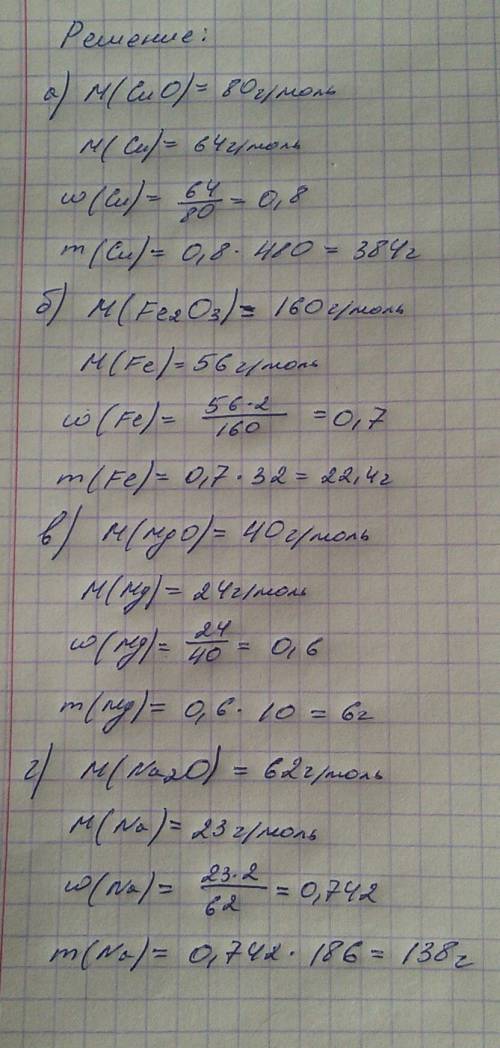 Решение:
а) M(CuO) = 80г/моль
M(Cu) = 64г/моль
ω(Cu) = 64/80 = 0,8
m(Cu) = 0,8 · 480 = 384г
б) M(Fe₂O₃) = 160г/моль
M(Fe) = 56г/моль
ω(Fe) = 56·2/160 = 0,7
m(Fe) = 0,7 · 32 = 22,4г
в) M(MgO) = 40г/моль
M(Mg) = 24г/моль
ω(Mg) = 24/40 = 0,6
m(Mg) = 0,6 · 10 = 6г
г) M(Na₂O) = 62г/моль
M(Na) = 23г/моль
ω(Na) = 23·2/62 = 0,742
m(Na) = 0,742 · 186 = 138г